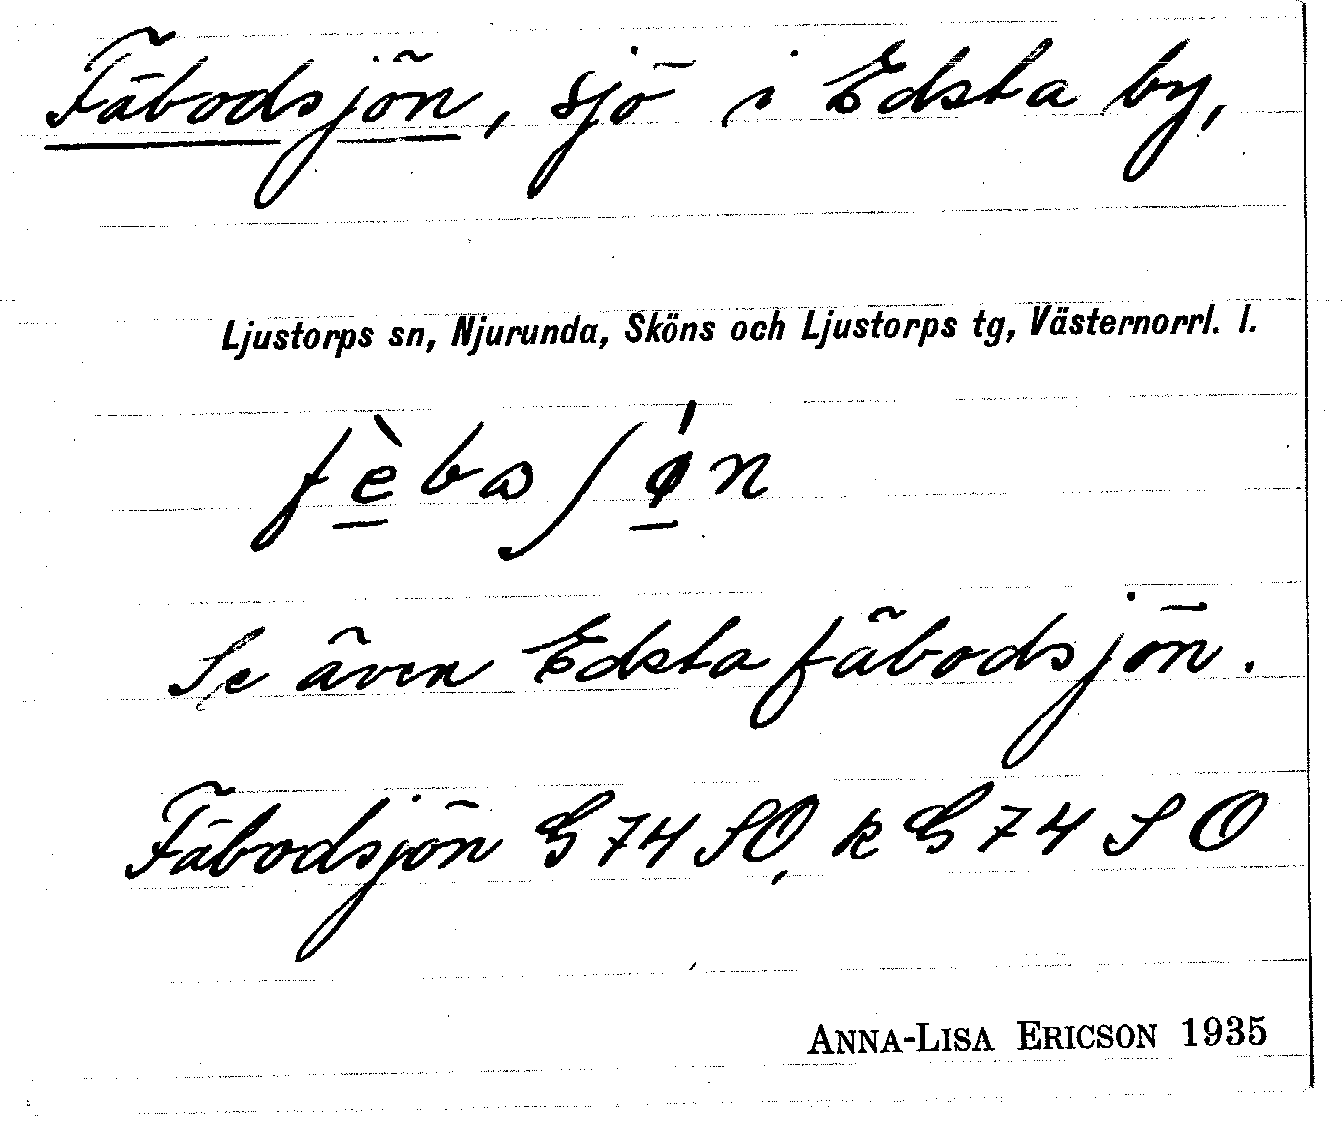 Fäbodsjön, sjö i Edsta by,
Ljustorps sn, Njurunda, Sköns och Ljustorps tg, Västernorrl. l.
fèbaʃøn
Se även Edsta fäbodsjön.
Fäbodsjön G 74 SO, k G 74 S O
ANNA-LISA ERICSON 1935